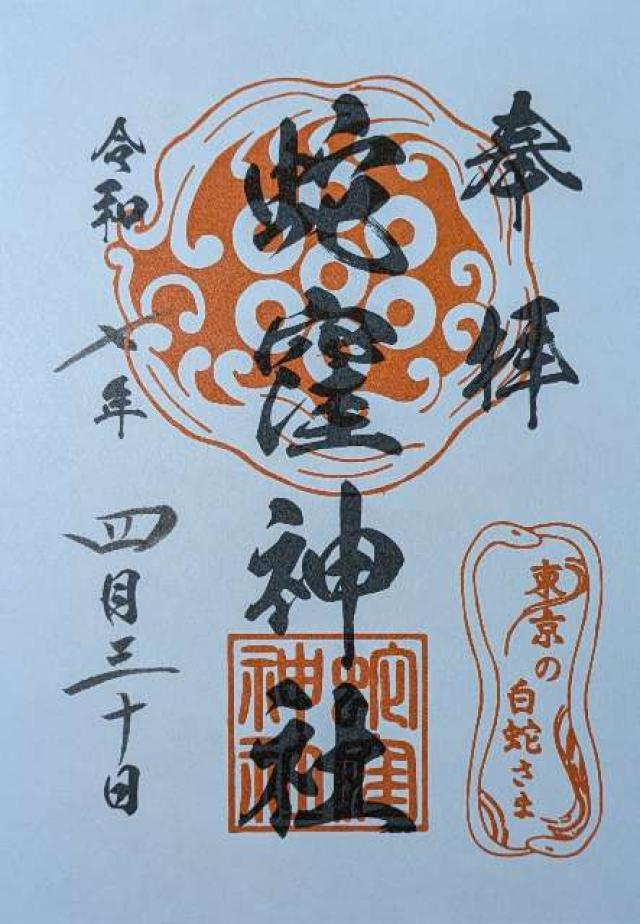 奉拝
蛇窪神社
蛇窪神社
令和七年四月三十日
東京の
白蛇さま